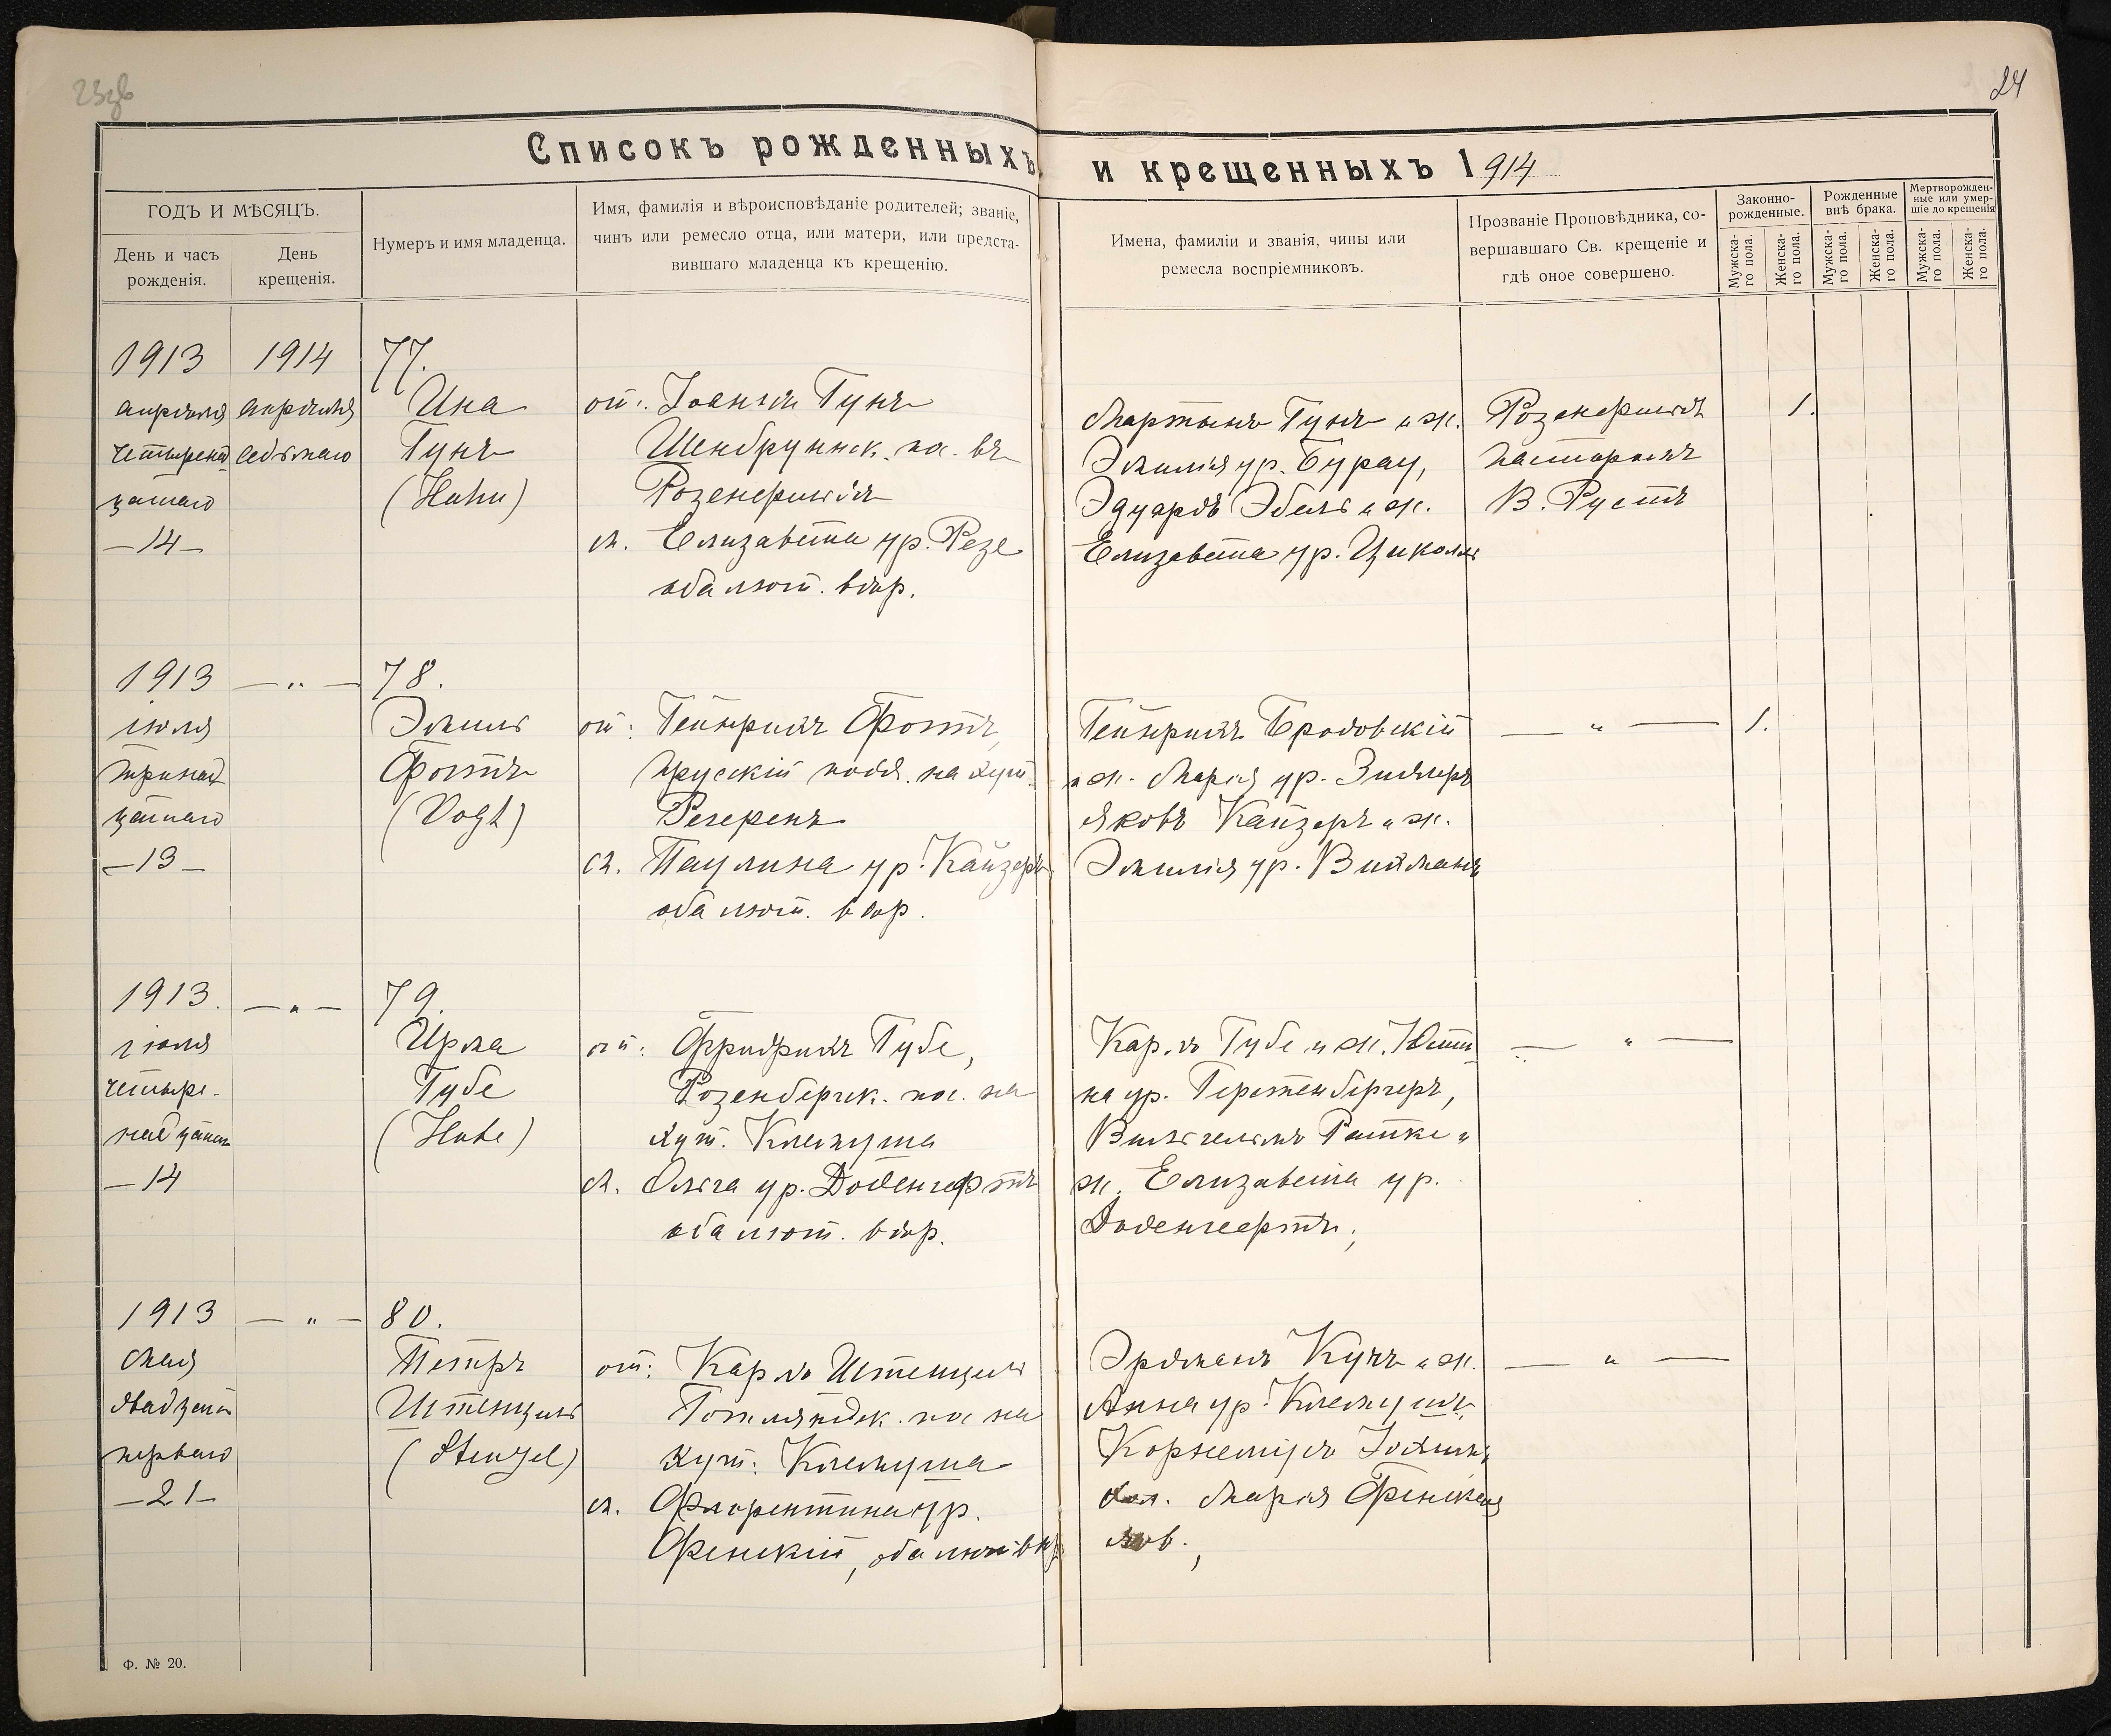 23об
24
Списокъ рожденныхъ и крещенныхъ 1914
ГОДЪ И МѢСЯЦЪ.
День и часъ рожденія.
День крещенія.
Нумеръ и имя младенца.
Имя, фамилія и вѣроисповѣданіе родителей; званіе,
чинъ или ремесло отца, или матери, или предста-
вившаго младенца къ крещенію.
Имена, фамиліи и званія, чины или
ремесла воспріемниковъ.
Прозваніе Проповѣдника, со-
вершавшаго Св. крещеніе и
гдѣ оное совершено.
Законно-
рожденные.
Рожденные
внѣ брака.
Мертворожден-
ные или умер-
шіе до крещенія
Мужска-
го пола.
Женска-
го пола.
Мужска-
го пола.
Женска-
го пола.
Мужска-
го пола.
Женска-
го пола.
1913
апрѣля
четырнад
цатаго
—14—
1914
апрѣля
седьмаго
77.
Ина
Гунъ
(Huhn)
от: Іоаннъ Гунъ
Шенбрунск. пос. въ
Розенфельдѣ
м. Елизавета ур. Резе
оба лют. вѣр.
Мартынъ Гунъ и ж.
Эмилія ур. Бурау,
Эдуардъ Эбель и ж.
Елизавета ур.
Розенфельдъ
пасторомъ
В. Рустъ
1.
1913
іюля
тринад
цатаго
—13—
— " —
78.
Эмиль
Фогтъ
(Vogt)
от: Гейнрихъ Фогтъ,
прусскій подд. на хут.
м. Паулина ур. Кайзеръ
оба лют. вѣр.
Гейнрихъ Бродовскій
и ж. Марія ур.
Яковъ Кайзеръ и ж.
Эмилія ур. Видманъ
— " —
1.
1913.
іюля
четыре-
надцатаго
—14
— " —
79.
Ирма
Губе
(Hube)
от: Фридрихъ Губе,
Розенбергск. пос. на
хут. Клемпуша
м. Ольга ур. Доденгефтъ
оба лют. вѣр.
Карлъ Губе и ж. Юсти
на ур. Герстенбергеръ,
Вильгельмъ Ратке и
ж. Елизавета ур.
Доденгефтъ;
— " —
1913
мая
двадцать
перваго
—21—
— " —
80.
Петръ
Штенцель
(Stenzel)
от: Карлъ Штенцель
пос на
хут: Клемпуша
м. Флорентина ур.
Фенскій, оба лют вѣр
Эрдманъ Кунъ и ж.
Анна ур. Клемпушъ,
Марія Фенская
— " —
Ф. № 20.